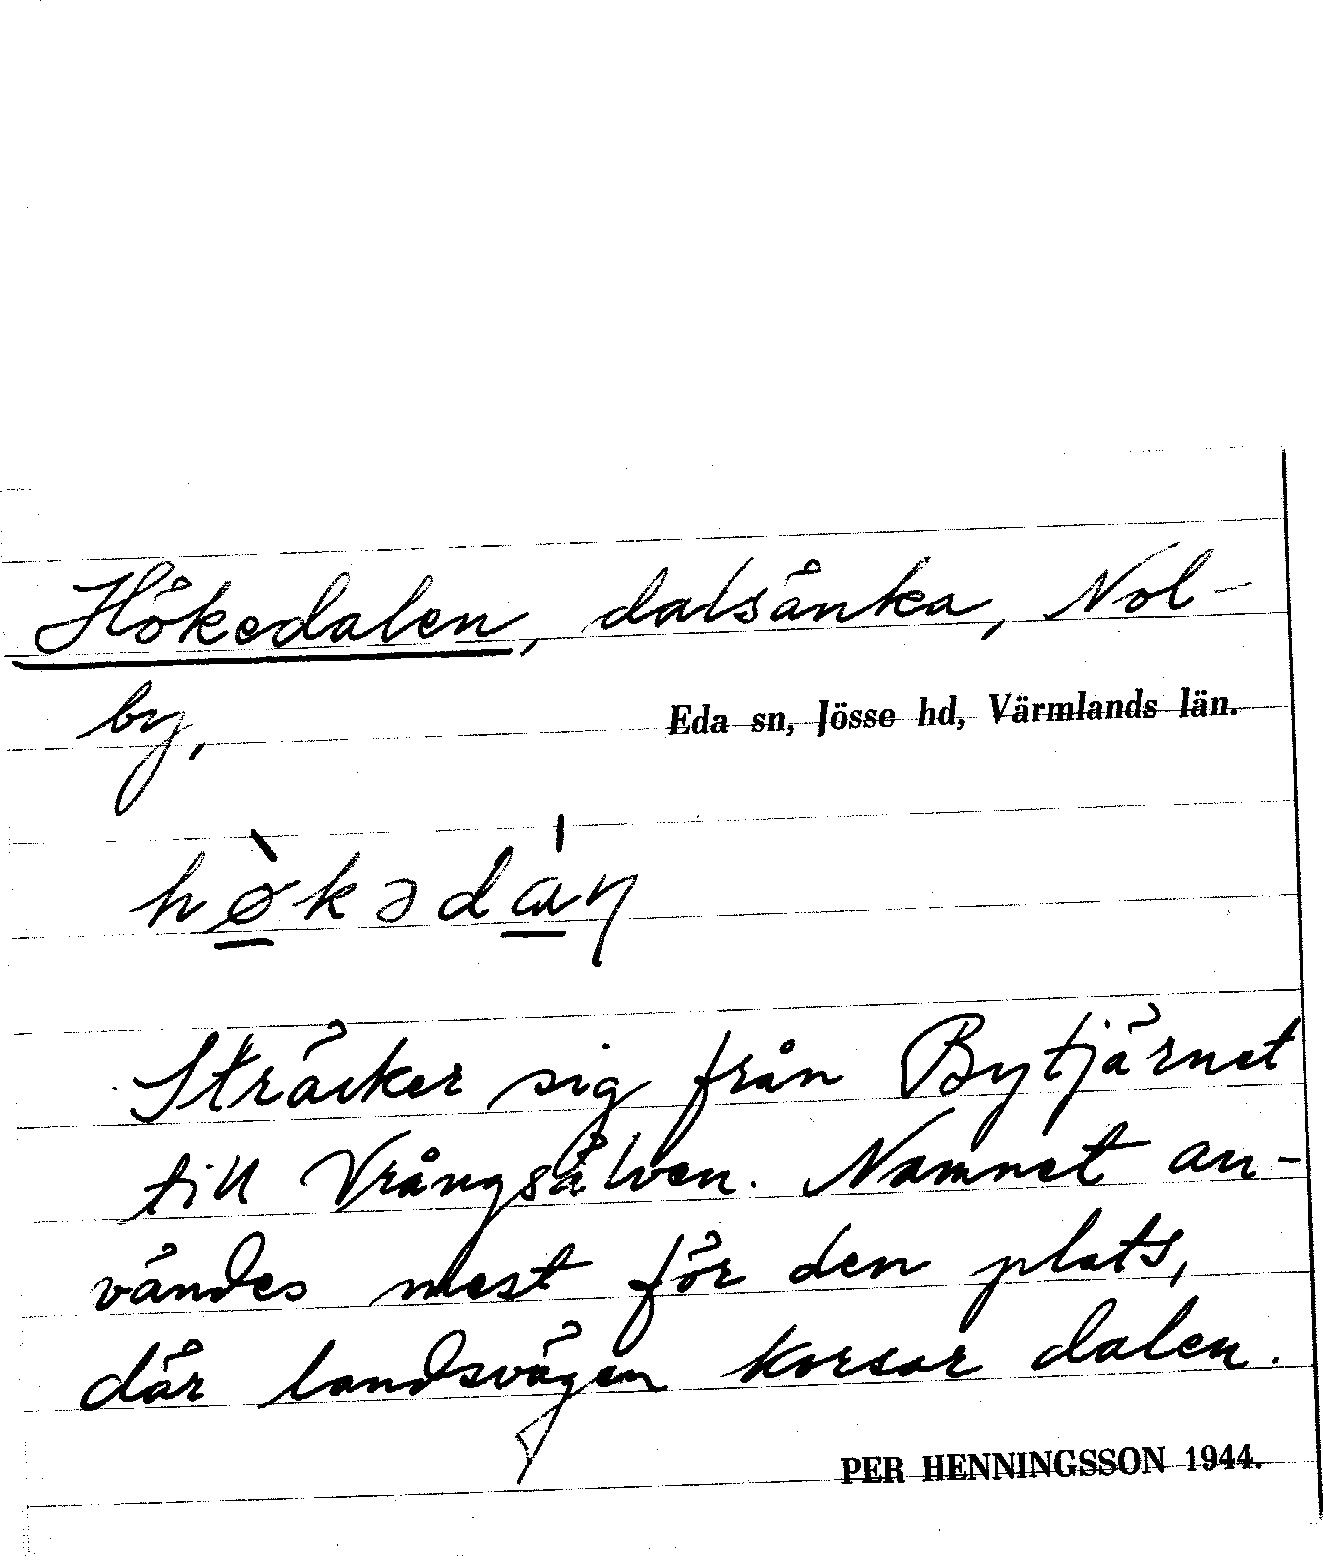 Hökedalen, dalsänka, Nol-
by,
Eda sn, Jösse hd, Värmlands län.
hø̀kədáη
Sträcker sig från Bytjärnet
till Vrångsälven. Namnet an-
vändes mest för den plats,
där landsvägen korsar dalen.
PER HENNINGSSON 1944.